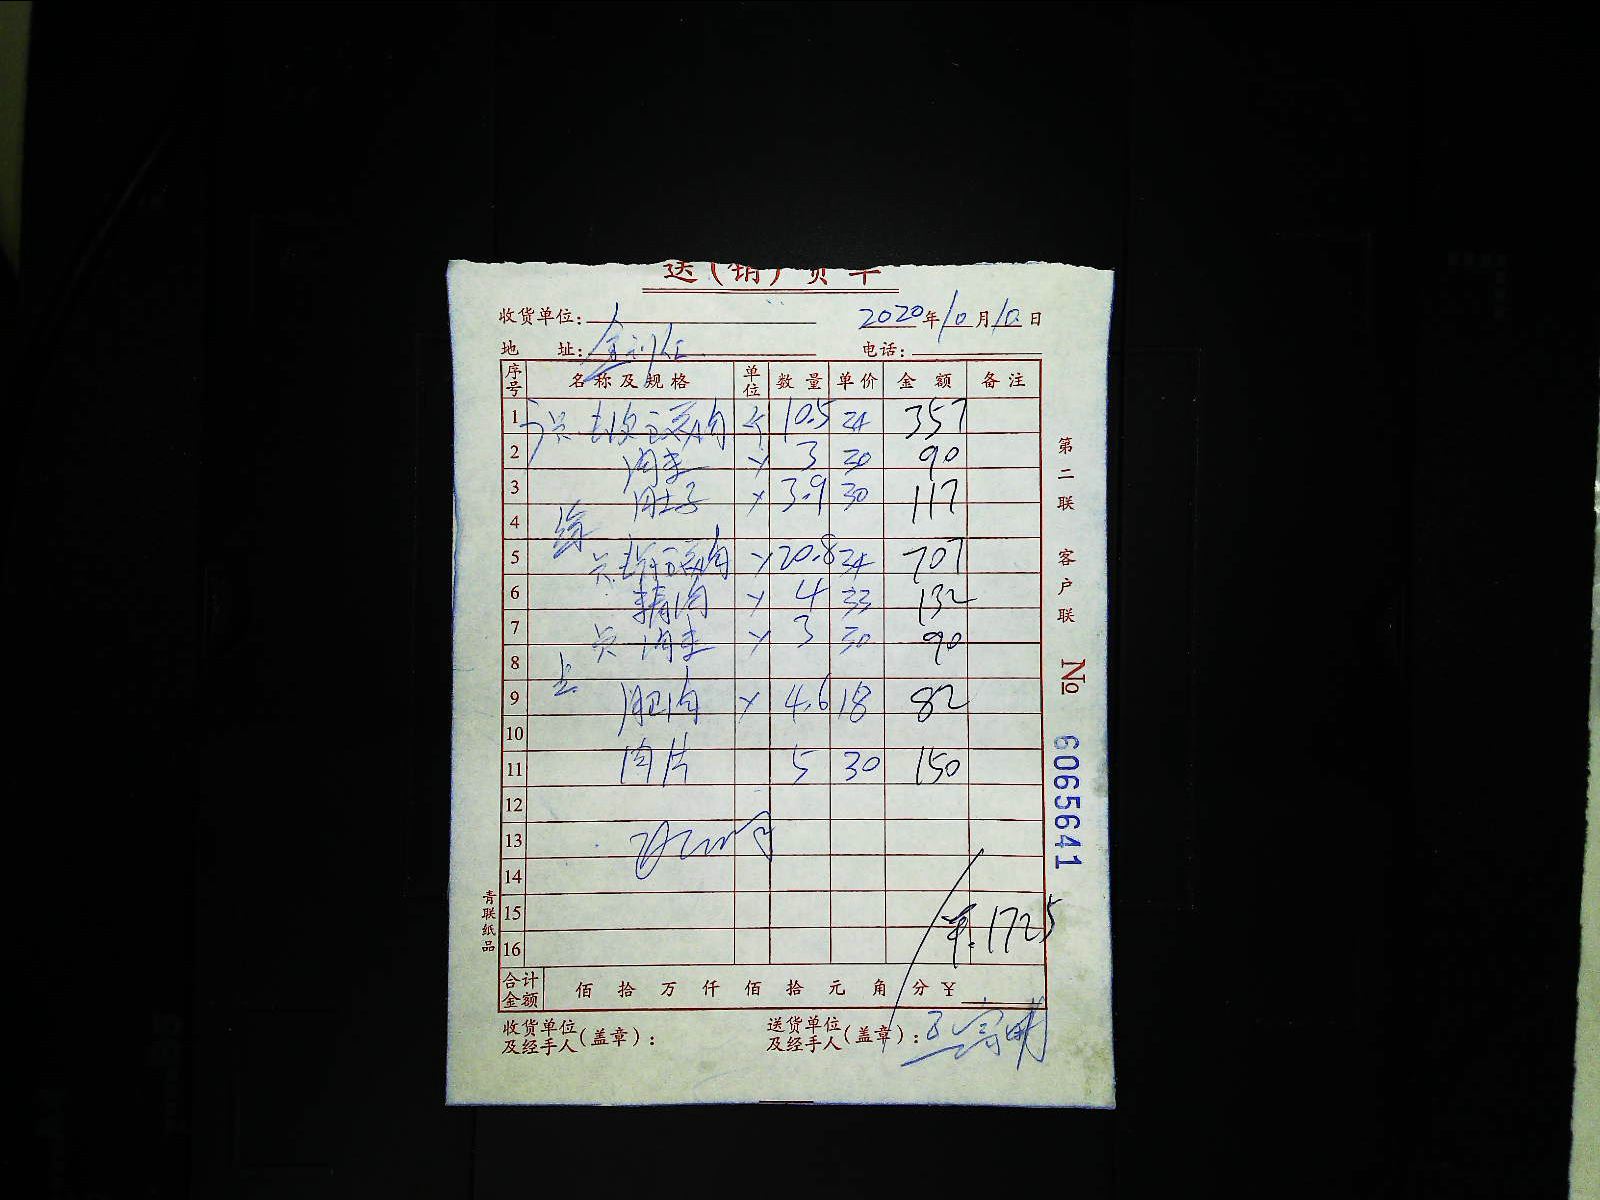 送(销)货单
收货单位:
2020年10月10日
地 址:
电话:
序号 名称及规格 单位 数量 单价 金额 备注
1 斤 10.5 34 357
2 肉末 〃 3 30 90
3 〃 3.9 30 117
4
5 〃 20.8 34 707
6 精肉 〃 4 33 132
7 肉末 〃 3 30 90
8
9 肥肉 〃 4.6 18 82
10
11 肉片 5 30 150
12
13
14
15
16
¥:1725
合计金额 佰 拾 万 仟 佰 拾 元 角 分 ¥
收货单位及经手人(盖章):
送货单位及经手人(盖章):
第二联 客户联
№ 6065641
青联纸品